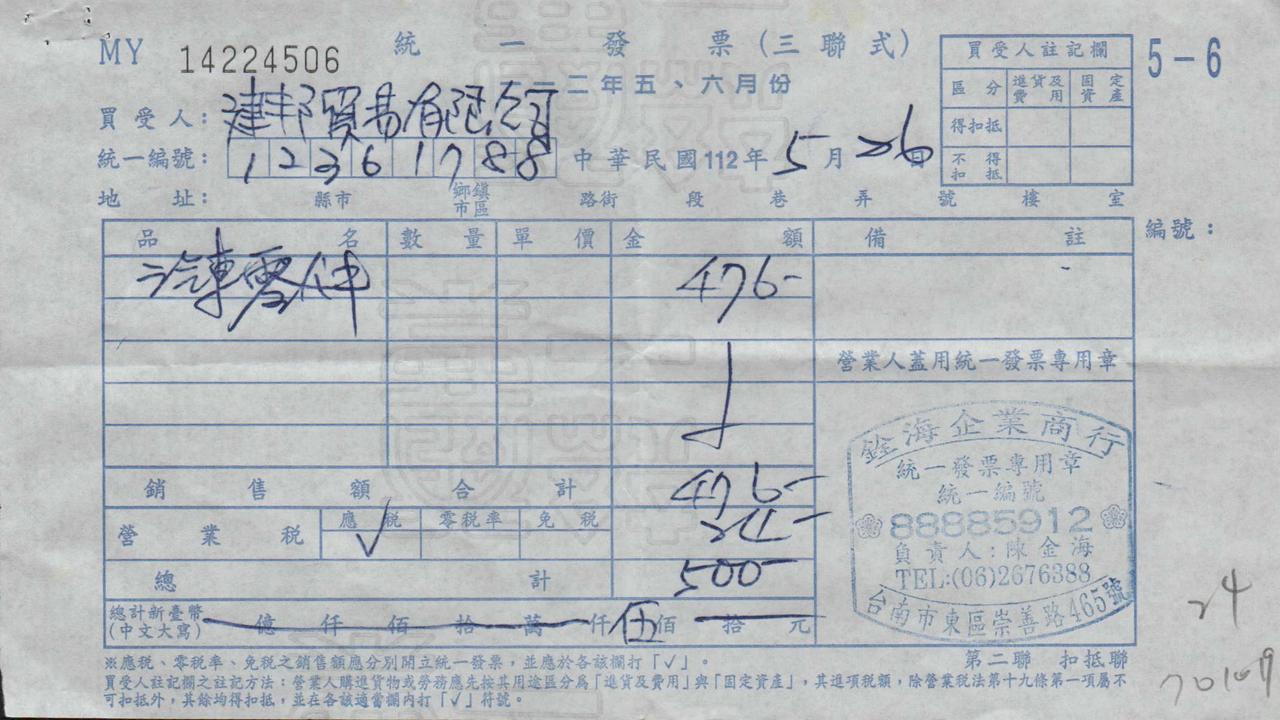 MY 14224506 統一發票(三聯式)
一二年五、六月份
5-6
買受人註記欄
區分 進貨及費用 固定資產
得扣抵
不得扣抵
買受人:建邦貿易有限公司
統一編號:12361788 中華民國112年5月26日
地址: 縣市 鄉鎮市區 路街 段 巷 弄 號 樓 室
編號:
品名 數量 單價 金額 備註
汽車零件 476-
營業人蓋用統一發票專用章
銷售額合計 476-
營業稅 應稅 ✓ 零稅率 免稅 24-
總計 500-
總計新臺幣(中文大寫) 億仟佰拾萬仟伍佰拾元
銓海企業商行
統一發票專用章
統一編號
88885912
負責人:陳金海
TEL:(06)2676388
台南市東區崇善路465號
24
第二聯 扣抵聯
※應稅、零稅率、免稅之銷售額應分別開立統一發票,並應於各該欄打「✓」。
買受人註記欄之註記方法:營業人購進貨物或勞務應先按其用途區分為「進貨及費用」與「固定資產」,其進項稅額,除營業稅法第十九條第一項屬不
可扣抵外,其餘均得扣抵,並在各該適當欄內打「✓」符號。